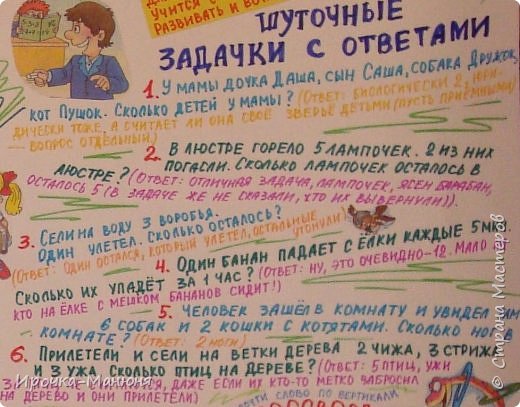 УЧИТСЯ
РАЗВИВАТЬ И
ШУТОЧНЫЕ
ЗАДАЧКИ С ОТВЕТАМИ
1. У МАМЫ ДОЧКА ДАША, СЫН САША, СОБАКА ДРУЖОК,
КОТ ПУШОК. СКОЛЬКО ДЕТЕЙ У МАМЫ? (ОТВЕТ: БИОЛОГИЧЕСКИ 2, ЮРИ-
ДИЧЕСКИ ТОЖЕ, А СЧИТАЕТ ЛИ ОНА СВОЁ ЗВЕРЬЁ ДЕТЬМИ (ПУСТЬ ПРИЁМНЫМИ)
ВОПРОС ОТДЕЛЬНЫЙ)
2. В ЛЮСТРЕ ГОРЕЛО 5 ЛАМПОЧЕК. 2 ИЗ НИХ
ПОГАСЛИ. СКОЛЬКО ЛАМПОЧЕК ОСТАЛОСЬ В
ЛЮСТРЕ? (ОТВЕТ: ОТЛИЧНАЯ ЗАДАЧА, ЛАМПОЧЕК, ЯСЕН БАРАБАН,
ОСТАЛОСЬ 5 (В ЗАДАЧЕ ЖЕ НЕ СКАЗАЛИ, ЧТО ИХ ВЫВЕРНУЛИ)).
3. СЕЛИ НА ВОДУ 3 ВОРОБЬЯ.
ОДИН УЛЕТЕЛ. СКОЛЬКО ОСТАЛОСЬ?
(ОТВЕТ: ОДИН ОСТАЛСЯ, КОТОРЫЙ УЛЕТЕЛ, ОСТАЛЬНЫЕ
УТОНУЛИ)
4. ОДИН БАНАН ПАДАЕТ С ЁЛКИ КАЖДЫЕ 5 МИН.
СКОЛЬКО ИХ УПАДЁТ ЗА 1 ЧАС? (ОТВЕТ: НУ, ЭТО ОЧЕВИДНО-12. МАЛО ЛИ
КТО НА ЁЛКЕ С МЕШКОМ БАНАНОВ СИДИТ!)
5. ЧЕЛОВЕК ЗАШЁЛ В КОМНАТУ И УВИДЕЛ ТАМ
6 СОБАК И 2 КОШКИ С КОТЯТАМИ. СКОЛЬКО НОГ В
КОМНАТЕ? (ОТВЕТ: 2 НОГИ)
6. ПРИЛЕТЕЛИ И СЕЛИ НА ВЕТКИ ДЕРЕВА 2 ЧИЖА, 3 СТРИЖА
И 3 УЖА. СКОЛЬКО ПТИЦ НА ДЕРЕВЕ? (ОТВЕТ: 5 ПТИЦ, УЖИ
ДАЖЕ ЕСЛИ ИХ КТО-ТО МЕТКО ЗАБРОСИЛ
НА ДЕРЕВО И ОНИ ПРИЛЕТЕЛИ)
СЛОВО ПО ВЕРТИКАЛИ
Ирочка-Манюня
© Страна Мастеров